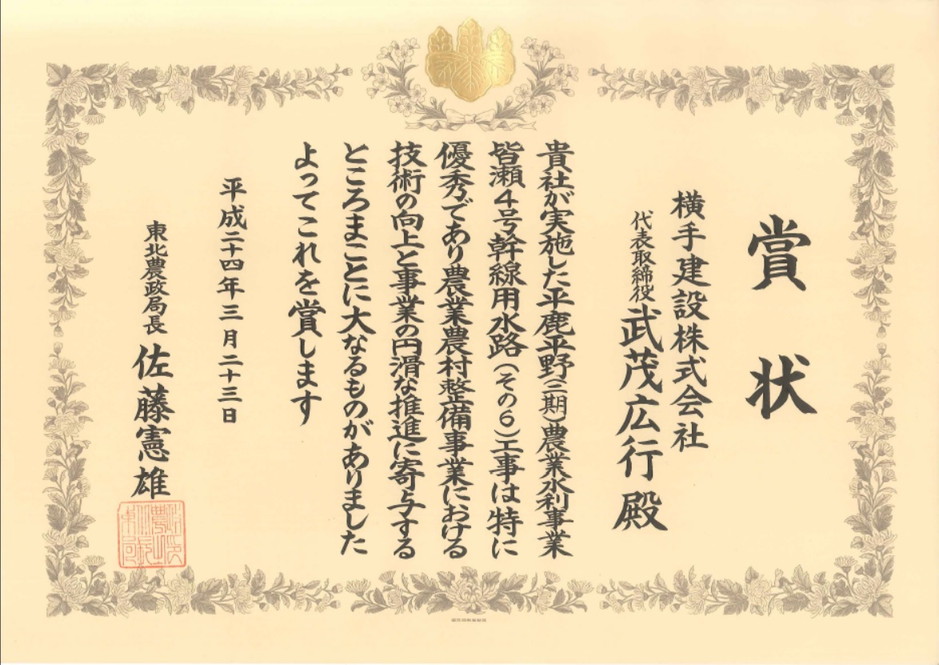 賞状
横手建設株式会社
代表取締役 武茂広行 殿
貴社が実施した平鹿平野(二期)農業水利事業
皆瀬4号幹線用水路(その6)工事は特に
優秀であり農業農村整備事業における
技術の向上と事業の円滑な推進に寄与する
ところまことに大なるものがありました
よってこれを賞します
平成二十四年三月二十三日
東北農政局長 佐藤憲雄